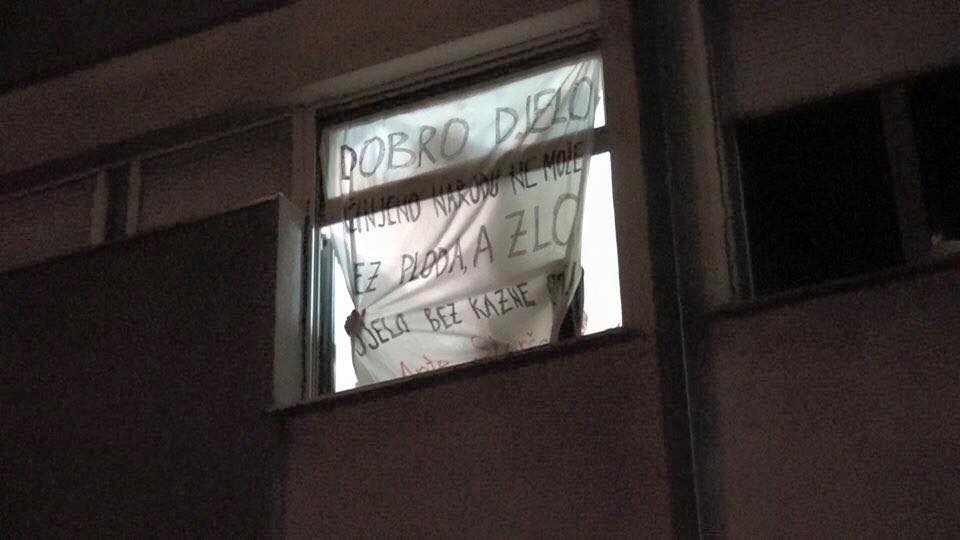 DOBRO DJELO
ČINJENO NARODU NE MOŽE
EZ PLODA, A ZLO
DJELO BEZ KAZNE
Ante